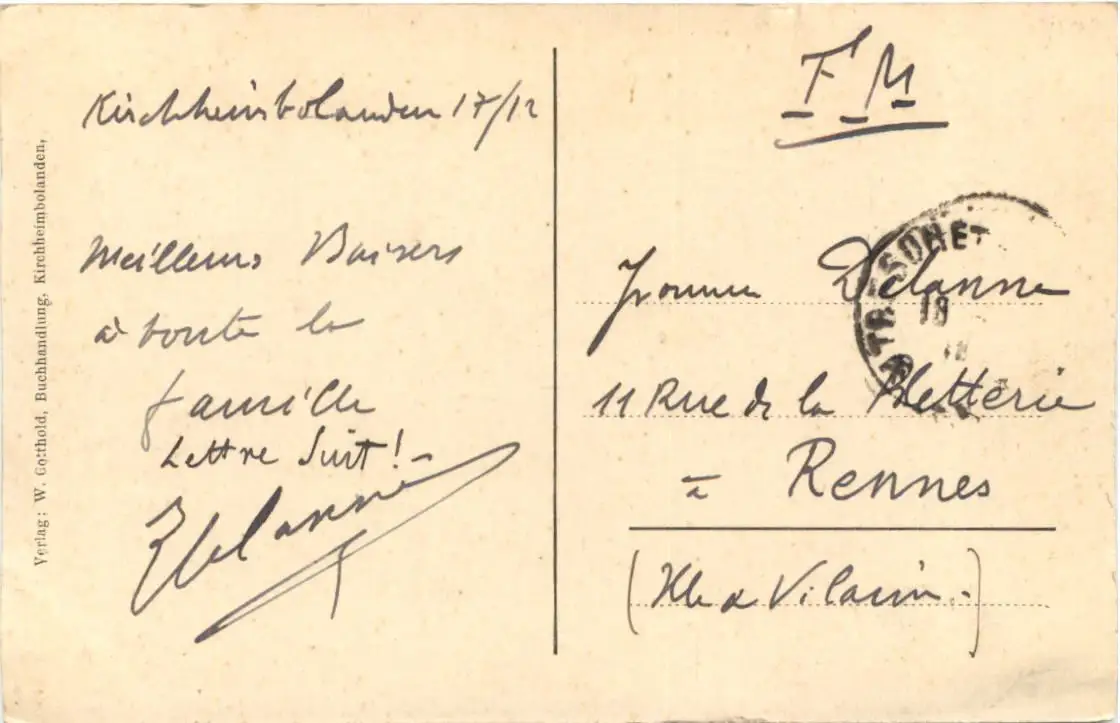 Verlag: W. Gotthold, Buchhandlung, Kirchheimbolanden,
Kirchheimbolanden 17/12
Meilleurs Baisers
à toute la
famille
Lettre suit! -
Delanne
F M
TRESOR ET
18
Delanne
11 Rue de la
à Rennes
(Ille & Vilaine.)